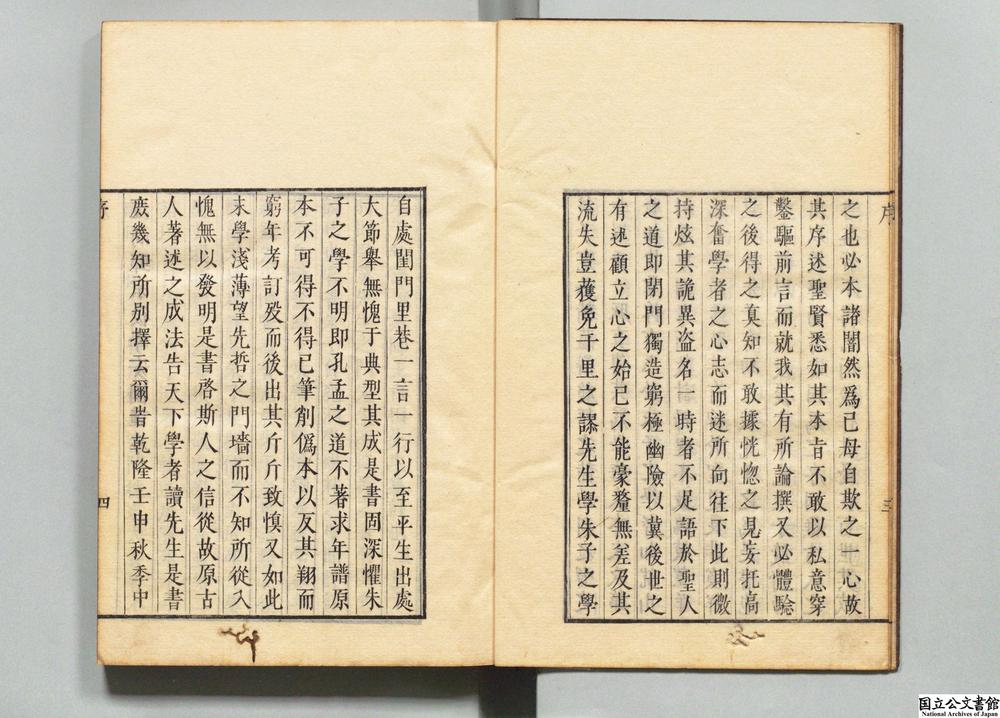 序
之也必本諸闇然為己毋自欺之一心故
其序述聖賢悉如其本旨不敢以私意穿
鑿驅前言而就我其有所論撰又必體驗
之後得之真知不敢據恍惚之見妄托高
深奮學者之心志而迷所向往下此則微
持炫其詭異盜名一時者不足語於聖人
之道即閉門獨造窮極幽險以冀後世之
有述顧立心之始已不能豪釐無差及其
流失豈獲免千里之謬先生學朱子之學
三
自處閨門里巷一言一行以至平生出處
大節舉無愧于典型其成是書固深懼朱
子之學不明即孔孟之道不著求年譜原
本不可得不得已筆削僞本以反其朔而
窮年考訂歿而後出其斤斤致慎又如此
末學淺薄望先哲之門墻而不知所從入
愧無以發明是書啓斯人之信從故原古
人著述之成法告天下學者讀先生是書
庶幾知所別擇云爾旹乾隆壬申秋季中
序
四
国立公文書館
National Archives of Japan